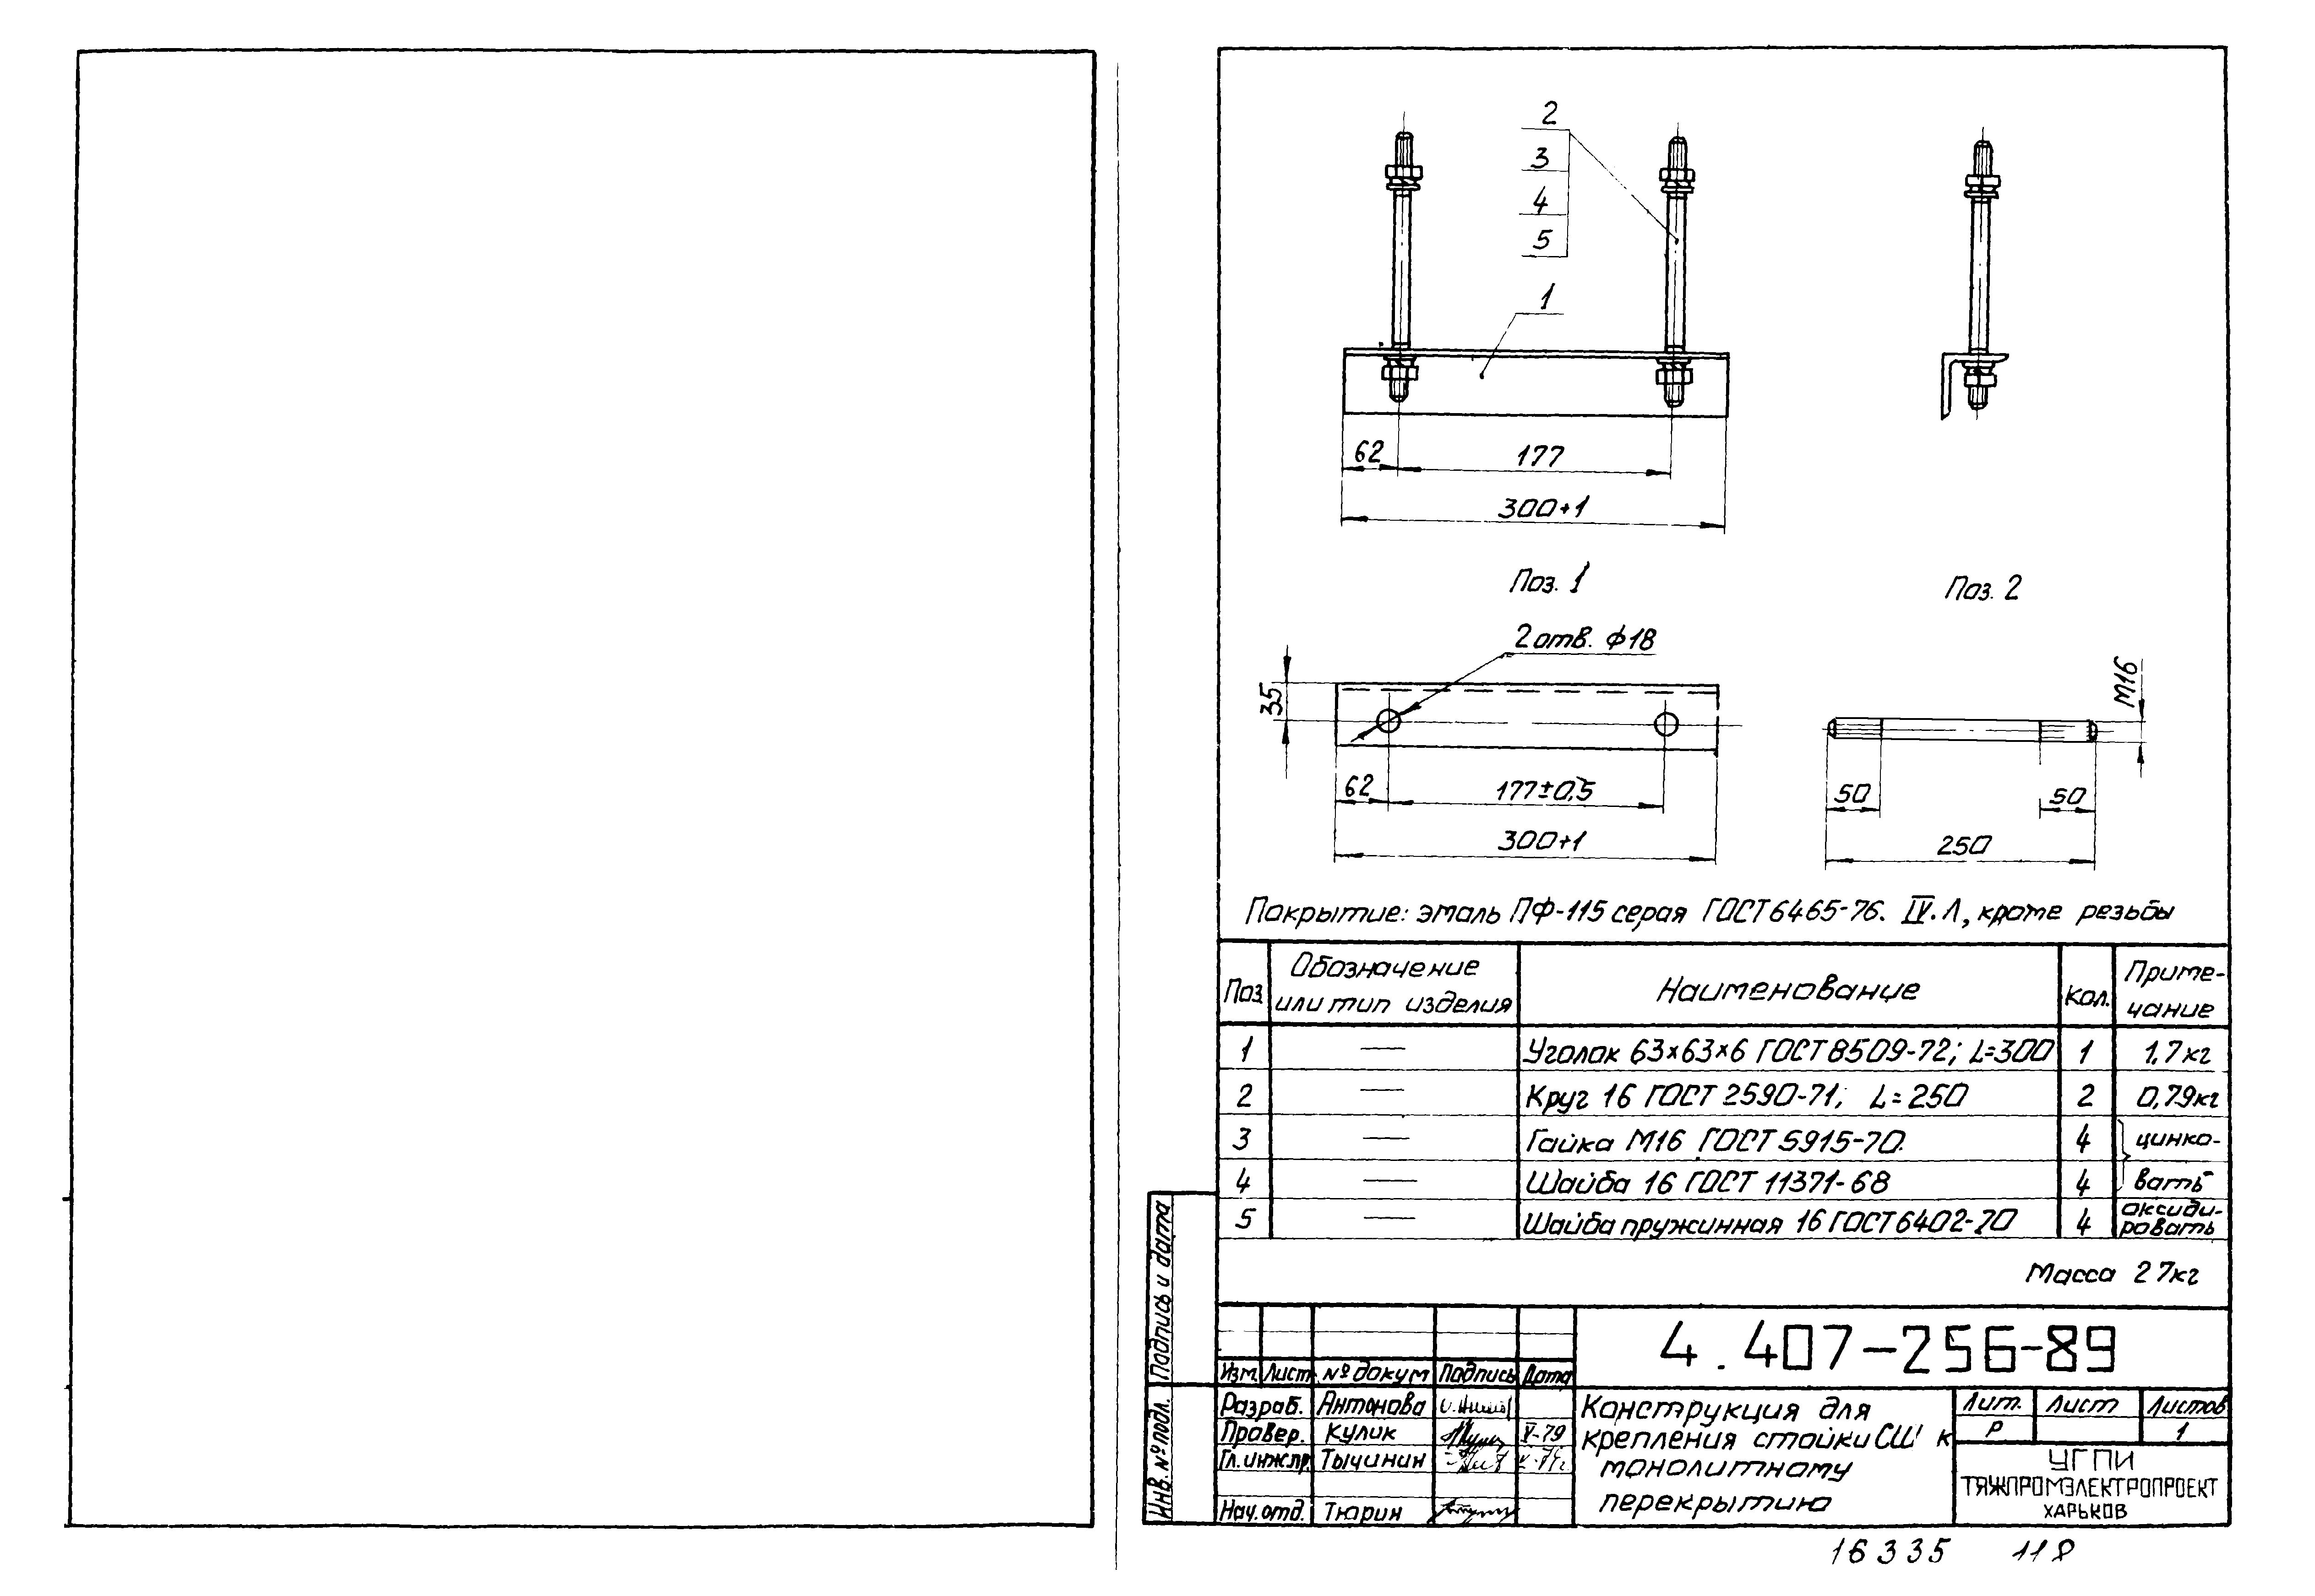 2
3
4
5
1
62 177
300+1
Поз. 1 Поз. 2
2 отв. ф18
35
М16
62 177±0,5
50 50
300+1
250
Покрытие: эмаль ПФ-115 серая ГОСТ 6465-76. IV.Л, кроме резьбы
Поз. Обозначение или тип изделия Наименование Кол. Приме-чание
1 — Уголок 63×63×6 ГОСТ 8509-72; L=300 1 1,7кг
2 — Круг 16 ГОСТ 2590-71; L=250 2 0,79кг
3 — Гайка М16 ГОСТ 5915-70. 4 цинко-
4 — Шайба 16 ГОСТ 11371-68 4 вать
5 — Шайба пружинная 16 ГОСТ 6402-70 4 оксиди-ровать
Масса 2 7кг
4.407-256-89
Изм. Лист № докум Подпись Дата
Разраб. Антонова
Провер. Кулик V-79
Гл.инж.пр. Тычинин
Нач.отд. Тюрин
Конструкция для
крепления стойки СШ к
монолитному
перекрытию
Лит. Лист Листов
Р 1
УГПИ
ТЯЖПРОМЭЛЕКТРОПРОЕКТ
ХАРЬКОВ
Инв. № подл. Подпись и дата
16335 118